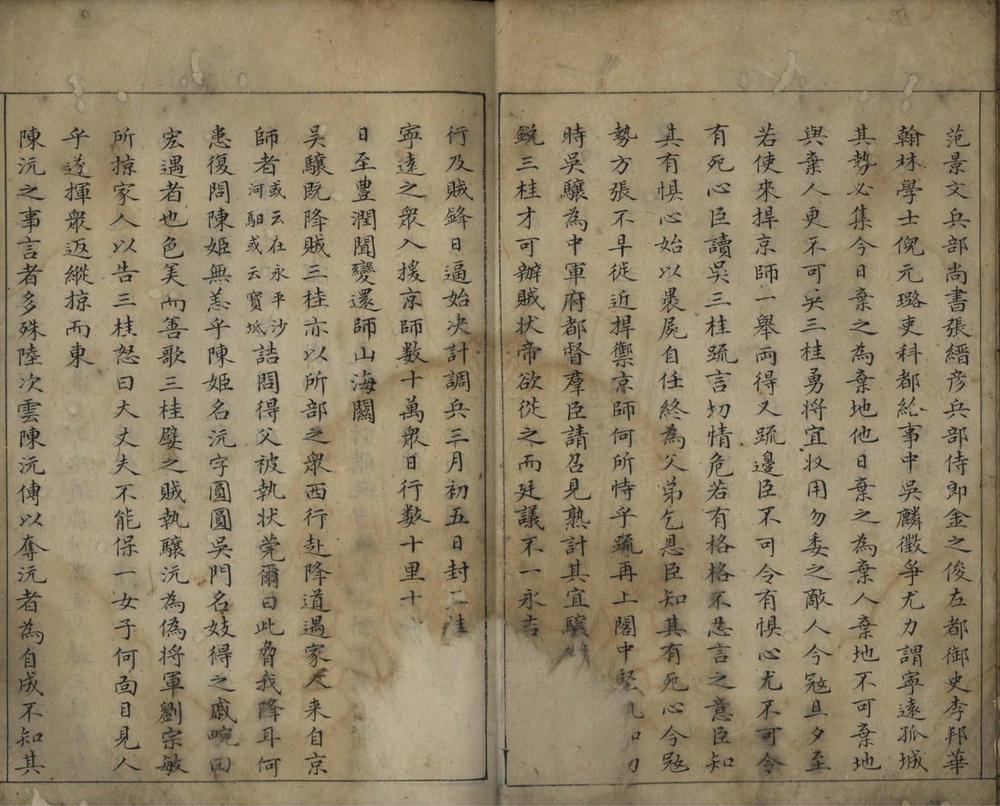 范景文兵部尚書張縉彦兵部侍郎金之俊左都御史李邦華
翰林學士倪元璐吏科都給事中吳麟徵争尤力謂寧遠孤城
其勢必集今日棄之為棄地他日棄之為棄人棄地不可棄地
與棄人更不可吳三桂勇将宜収用勿委之敵人今㓂旦夕至
若使来捍京師一舉両得又疏邊臣不可令有惧心尤不可令
有死心臣讀吳三桂疏言切情危若有格格不忍言之意臣知
其有惧心始以裹屍自任終為父弟乞恩臣知其有死心今㓂
勢方張不早従近捍禦京師何所恃乎疏再上閣中堅
時吳驤為中軍府都督羣臣請召見熟計其宜驤
鋭三桂才可辦賊状帝欲従之而廷議不一永吉
行及賊鋒日逼始决計調兵三月初五日封三桂
寧遠之衆入援京師数十萬衆日行数十里十
日至豊潤聞變還師山海關
吳驤既降賊三桂亦以所部之衆西行赴降道遇家人来自京
師者或云在永平沙河驲或云寳坻詰問得父被執状莞爾曰此脅我降耳何
恚復問陳姬無恙乎陳姬名沅字圓圓吳門名妓得之戚畹田
宏遇者也色美而善歌三桂嬖之賊執驤沅為偽将軍劉宗敏
所掠家人以告三桂怒曰大丈夫不能保一女子何面目見人
乎遂揮衆返縱掠而東
陳沅之事言者多殊陸次雲陳沅傳以奪沅者為自成不知其